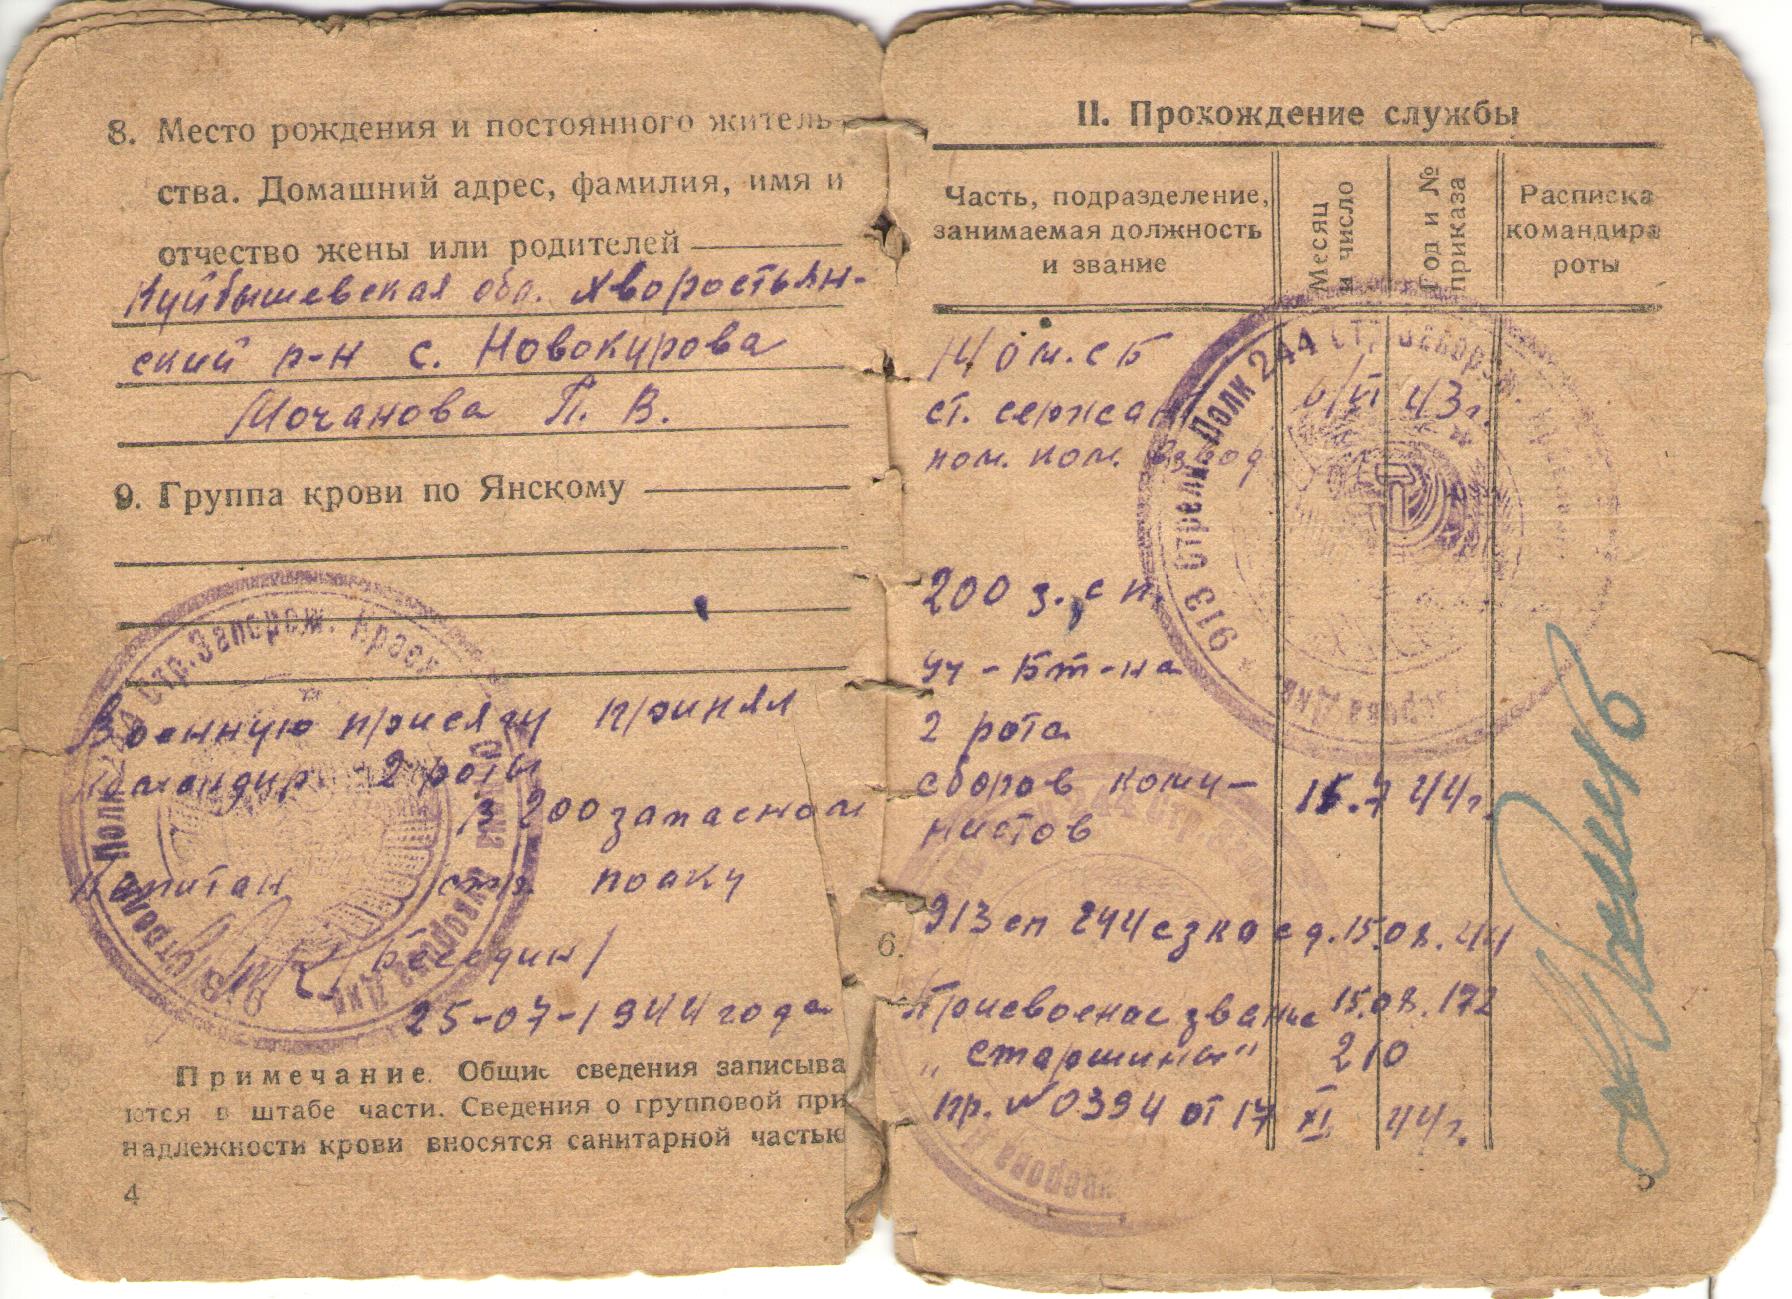 8. Место рождения и постоянного житель-
ства. Домашний адрес, фамилия, имя и
отчество жены или родителей
Куйбышевская обл. Хворостян-
ский р-н с. Новокурова
Мочанова П. В.
9. Группа крови по Янскому
Военную присягу принял
Командир 2 роты
в 200 запасном
капитан стр. полку
/Беседин/
25-07-1944 года
Примечание. Общие сведения записыва
ются в штабе части. Сведения о групповой при
надлежности крови вносятся санитарной частью
4
II. Прохождение службы
Часть, подразделение, занимаемая должность и звание
Месяц и число
Год и № приказа
Расписка командира роты
ст. сержант
VI 43г.
пом. ком. взвод
200 з. с п.
уч - Бт-на
2 рота
сборов кому-
15.7 44г.
нистов
913 сп 244 сзко сд. 15.08.44
6.
Присвоенае звание 15.08. 172
„Старшина" 210
пр. №0394 от 17 XI 44г.
5
913 Стрелк. Полк 244 Стр. Запорож.
Стр. Запорож. Красн
Полк 244 Стр.